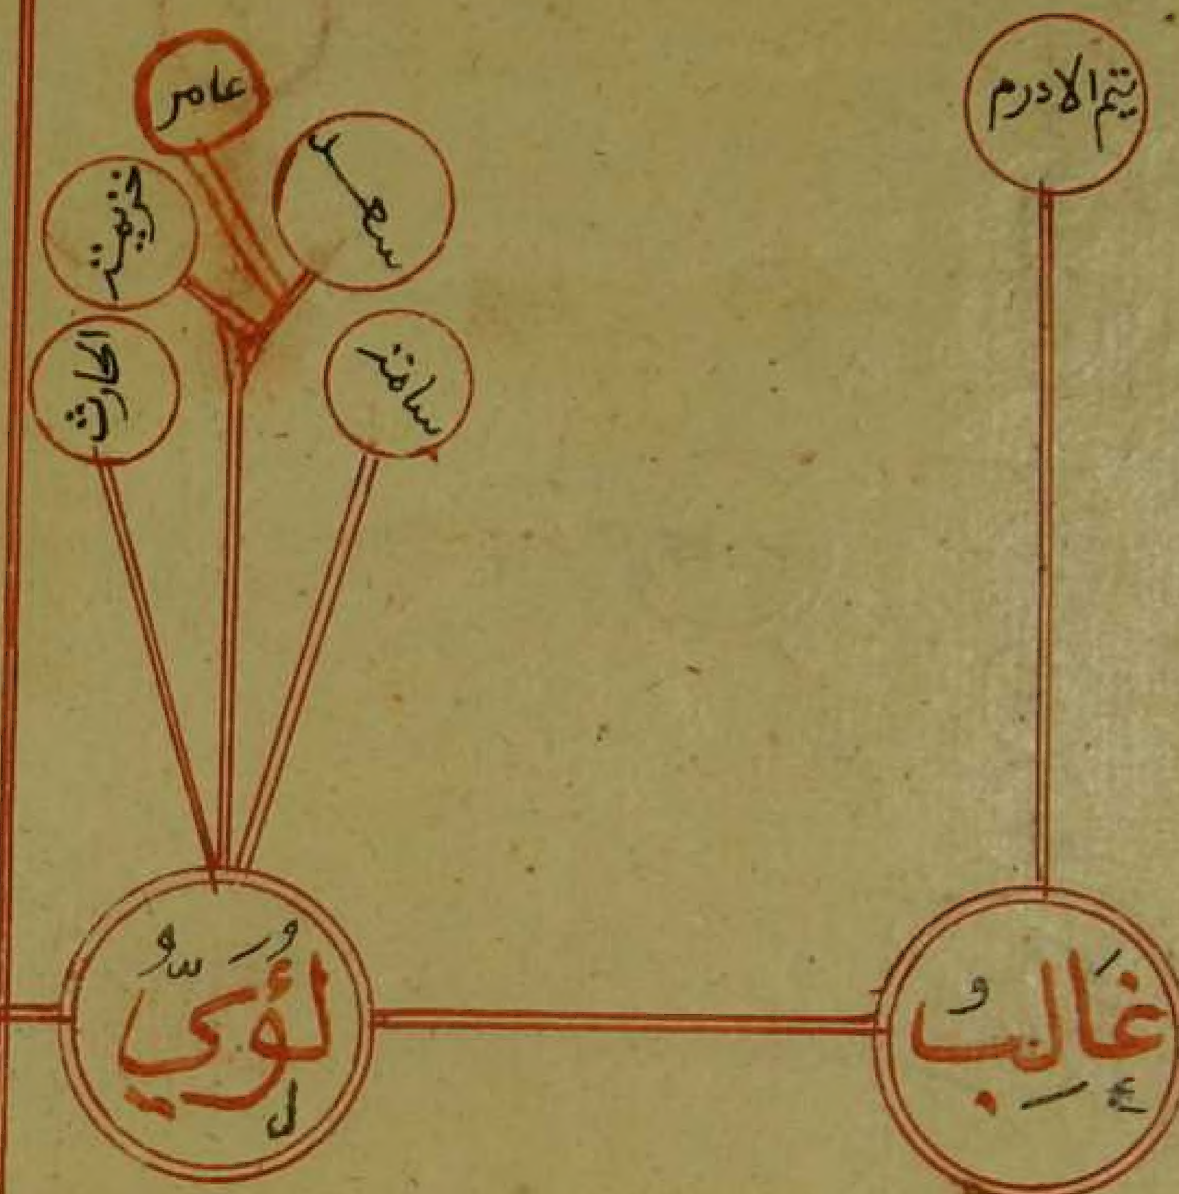 تيم الادرم
عامر
سعد
خزيمة
الحارث
سامة
غَالِبُ
ع
لُؤَيُّ
ل